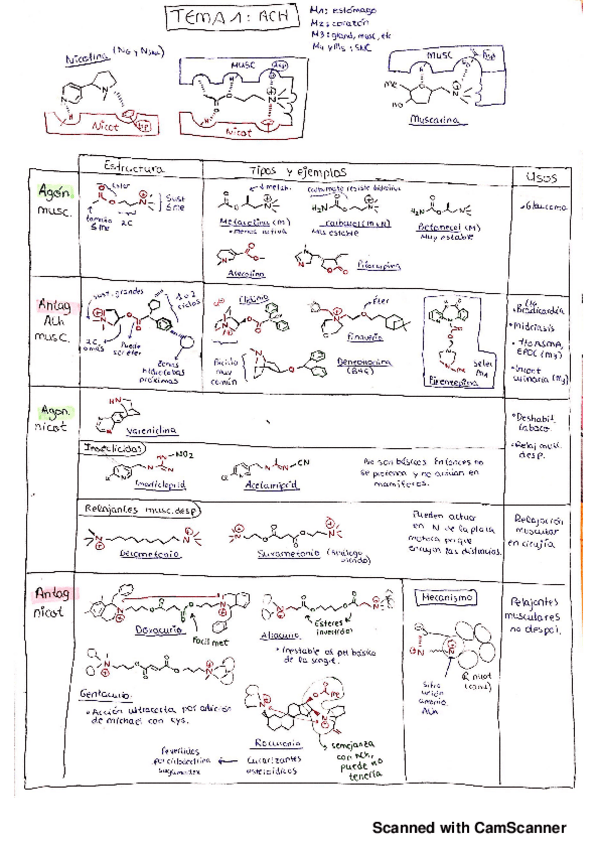 TEMA 1: ACH
M1: estómago
M2: corazón
M3: gland, musc, etc
M4 y M5: SNC
Nicotina (NG y NSNC)
Nicot
MUSC
Nicot
MUSC
Me
HO
Muscarina
Estructura
Tipos y ejemplos
Usos
Agon. musc.
ester
tamaño
2C
Sust
≤ me
Metacolina (M)
carbacol (M y N)
Mas estable
Betanecol (M)
Muy estable
Arecolina
Pilocarpina
• Glaucoma
Antag Ach musc.
Sust. grandes
1 o 2 ciclos
2C, o más
Puede
Zonas hidrófobas próximas
Clidinio
Éter
Pinaverio
muy común
Pirenzepina
Selec M1
• Bradicardia
• Midriasis
• Asma, EPOC (M3)
• Incont urinaria (M3)
Agon. nicot
Vareniclina
• Deshabit. tabaco
• Relaj musc. desp.
Insecticidas
NO2
Imidacloprid
CN
Acetamiprid
No son básicos. Entonces no
se protonan y no actúan en
mamíferos.
Relajantes musc. desp.
Decametonio
Suxametonio
Pueden actuar
en N de la placa
motora porque
encajan las distancias.
Relajación muscular en cirugía
Antag nicot
Doxacurio
Facil met
Atracurio
Ésteres invertidos
• Inestable al pH básico
de la sangre.
Mecanismo
Sitio unión amonio Ach
R nicot
Relajantes musculares no despol.
Gantacurio
• Acción ultracorta por adición
de michael con cys.
Rocuronio
Curarizantes esteroídicos
semejanza
con Ach,
puede no
tenerla
revertidos
por ciclodextrina
sugammadex
Scanned with CamScanner